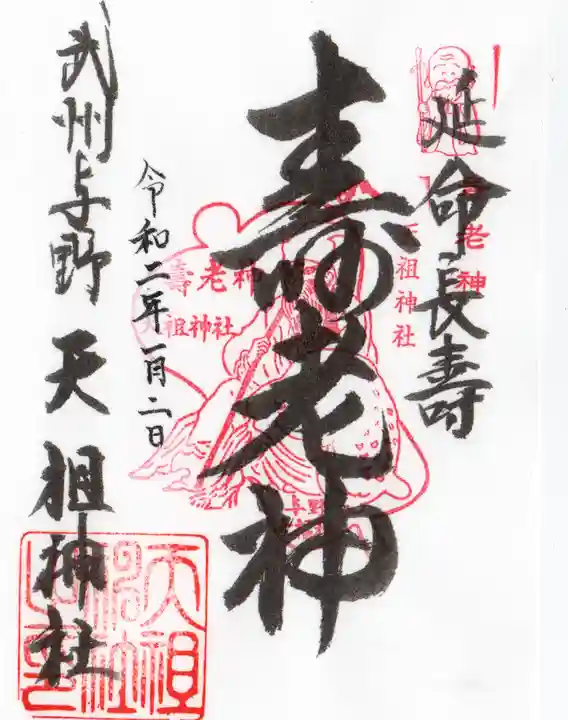 延命長壽
老神
天祖神社
壽老神
壽老神
天祖神社
与野
令和二年一月二日
武州与野 天祖神社
天祖
神社